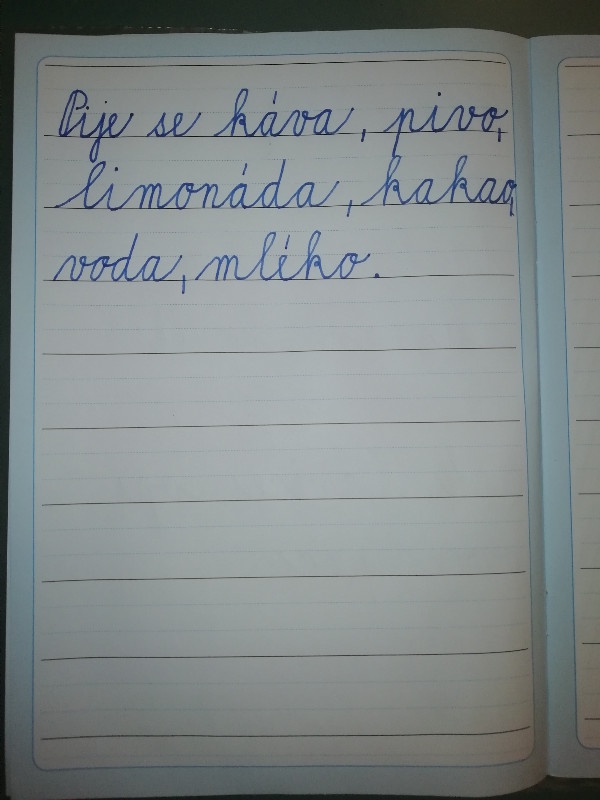 Pije se káva, pivo,
limonáda, kakao,
voda, mléko.